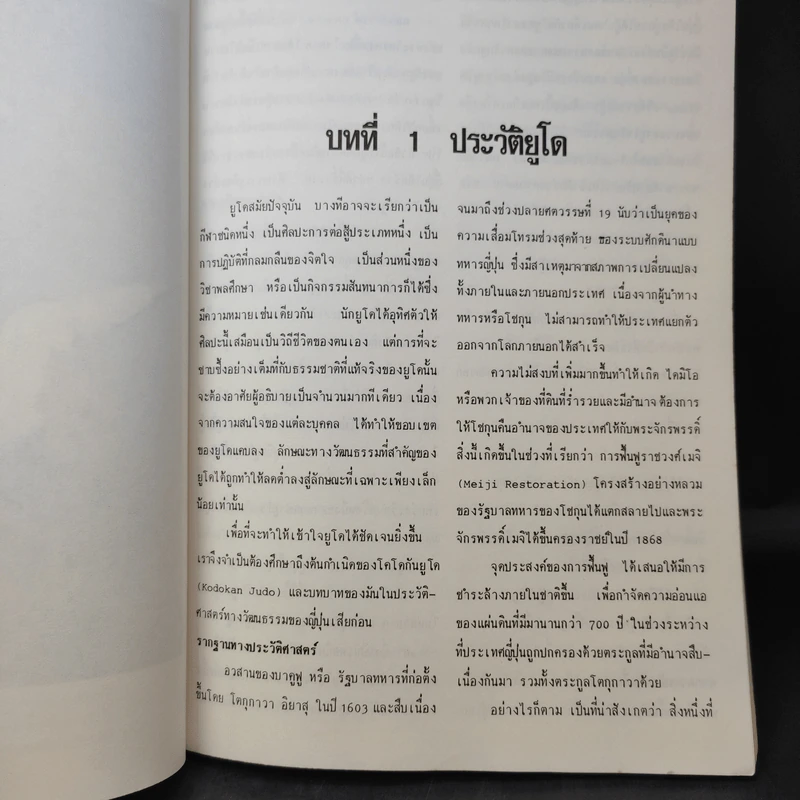 บทที่ 1 ประวัติยูโด
ยูโดสมัยปัจจุบัน บางทีอาจจะเรียกว่าเป็น
กีฬาชนิดหนึ่ง เป็นศิลปะการต่อสู้ประเภทหนึ่ง เป็น
การปฏิบัติที่กลมกลืนของจิตใจ เป็นส่วนหนึ่งของ
วิชาพลศึกษา หรือเป็นกิจกรรมสันทนาการก็ได้ซึ่ง
มีความหมายเช่นเดียวกัน นักยูโดได้อุทิศตัวให้
ศิลปะนี้เสมือนเป็นวิถีชีวิตของตนเอง แต่การที่จะ
ซาบซึ้งอย่างเต็มที่กับธรรมชาติที่แท้จริงของยูโดนั้น
จะต้องอาศัยผู้อธิบายเป็นจำนวนมากทีเดียว เนื่อง
จากความสนใจของแต่ละบุคคล ได้ทำให้ขอบเขต
ของยูโดแคบลง ลักษณะทางวัฒนธรรมที่สำคัญของ
ยูโดได้ถูกทำให้ลดต่ำลงสู่ลักษณะที่เฉพาะเพียงเล็ก
น้อยเท่านั้น
เพื่อที่จะทำให้เข้าใจยูโดได้ชัดเจนยิ่งขึ้น
เราจึงจำเป็นต้องศึกษาถึงต้นกำเนิดของโคโดกันยูโด
(Kodokan Judo) และบทบาทของมันในประวัติ-
ศาสตร์ทางวัฒนธรรมของญี่ปุ่นเสียก่อน
รากฐานทางประวัติศาสตร์
อวสานของบาคูฟู หรือ รัฐบาลทหารที่ก่อตั้ง
ขึ้นโดย โตกุกาวา อิยาสุ ในปี 1603 และสืบเนื่อง
จนมาถึงช่วงปลายศตวรรษที่ 19 นับว่าเป็นยุคของ
ความเสื่อมโทรมช่วงสุดท้าย ของระบบศักดินาแบบ
ทหารญี่ปุ่น ซึ่งมีสาเหตุมาจากสภาพการเปลี่ยนแปลง
ทั้งภายในและภายนอกประเทศ เนื่องจากผู้นำทาง
ทหารหรือโชกุน ไม่สามารถทำให้ประเทศแยกตัว
ออกจากโลกภายนอกได้สำเร็จ
ความไม่สงบที่เพิ่มมากขึ้นทำให้เกิด ไดมิโอ
หรือพวกเจ้าของที่ดินที่ร่ำรวยและมีอำนาจ ต้องการ
ให้โชกุนคืนอำนาจของประเทศให้กับพระจักรพรรดิ์
สิ่งนี้เกิดขึ้นในช่วงที่เรียกว่า การฟื้นฟูราชวงศ์เมจิ
(Meiji Restoration) โครงสร้างอย่างหลวม
ของรัฐบาลทหารของโชกุนได้แตกสลายไปและพระ
จักรพรรดิ์เมจิได้ขึ้นครองราชย์ในปี 1868
จุดประสงค์ของการฟื้นฟู ได้เสนอให้มีการ
ชำระล้างภายในชาติขึ้น เพื่อกำจัดความอ่อนแอ
ของแผ่นดินที่มีมานานกว่า 700 ปี ในช่วงระหว่าง
ที่ประเทศญี่ปุ่นถูกปกครองด้วยตระกูลที่มีอำนาจสืบ-
เนื่องกันมา รวมทั้งตระกูลโตกุกาวาด้วย
อย่างไรก็ตาม เป็นที่น่าสังเกตว่า สิ่งหนึ่งที่